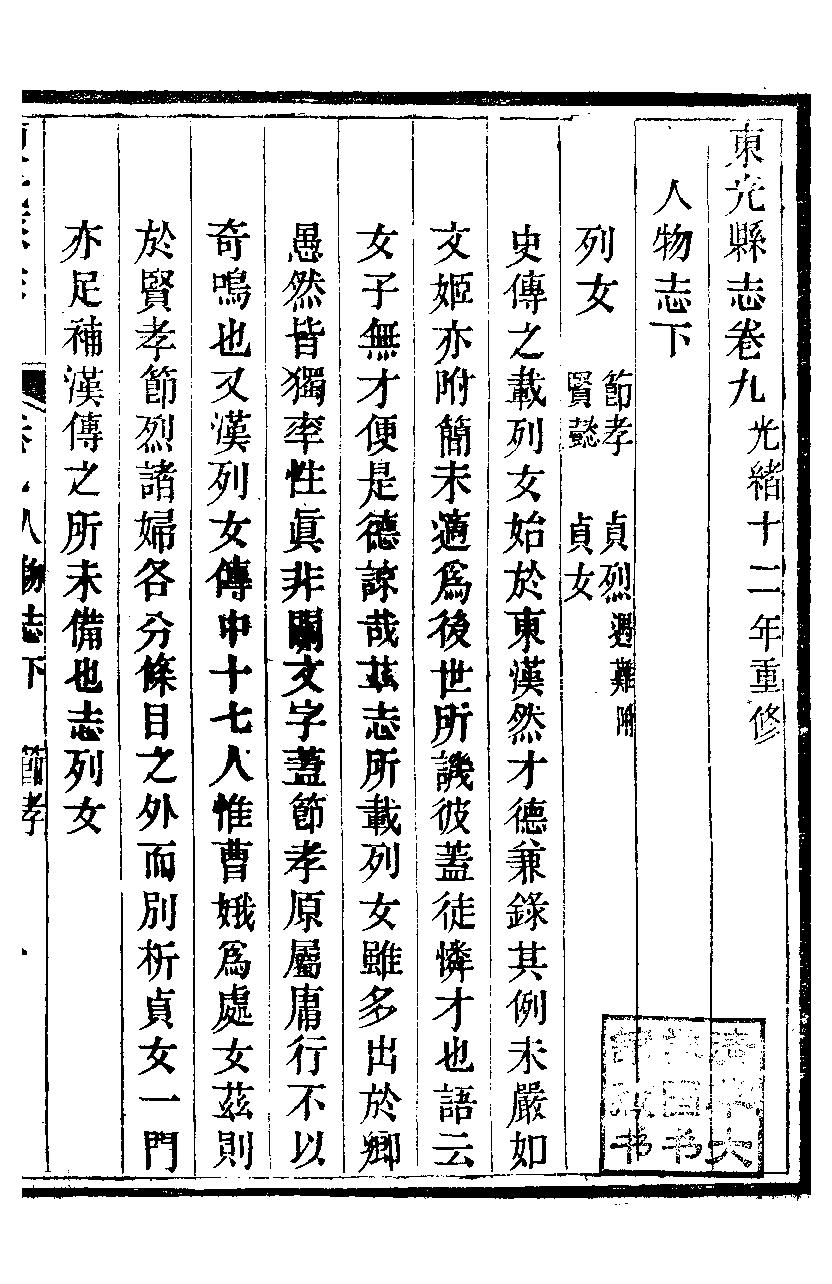 東光縣志卷九 光緒十二年重修
人物志下
列女 節孝 貞烈 遇難附
賢懿 貞女
史傳之載列女始於東漢然才德兼錄其例未嚴如
文姬亦附簡未適爲後世所譏彼蓋徒憐才也語云
女子無才便是德諒哉茲志所載列女雖多出於鄉
愚然皆獨率性眞非關文字蓋節孝原屬庸行不以
奇鳴也又漢列女傳中十七人惟曹娥爲處女茲則
於賢孝節烈諸婦各分條目之外而別析貞女一門
亦足補漢傳之所未備也志列女
人物志下 節孝